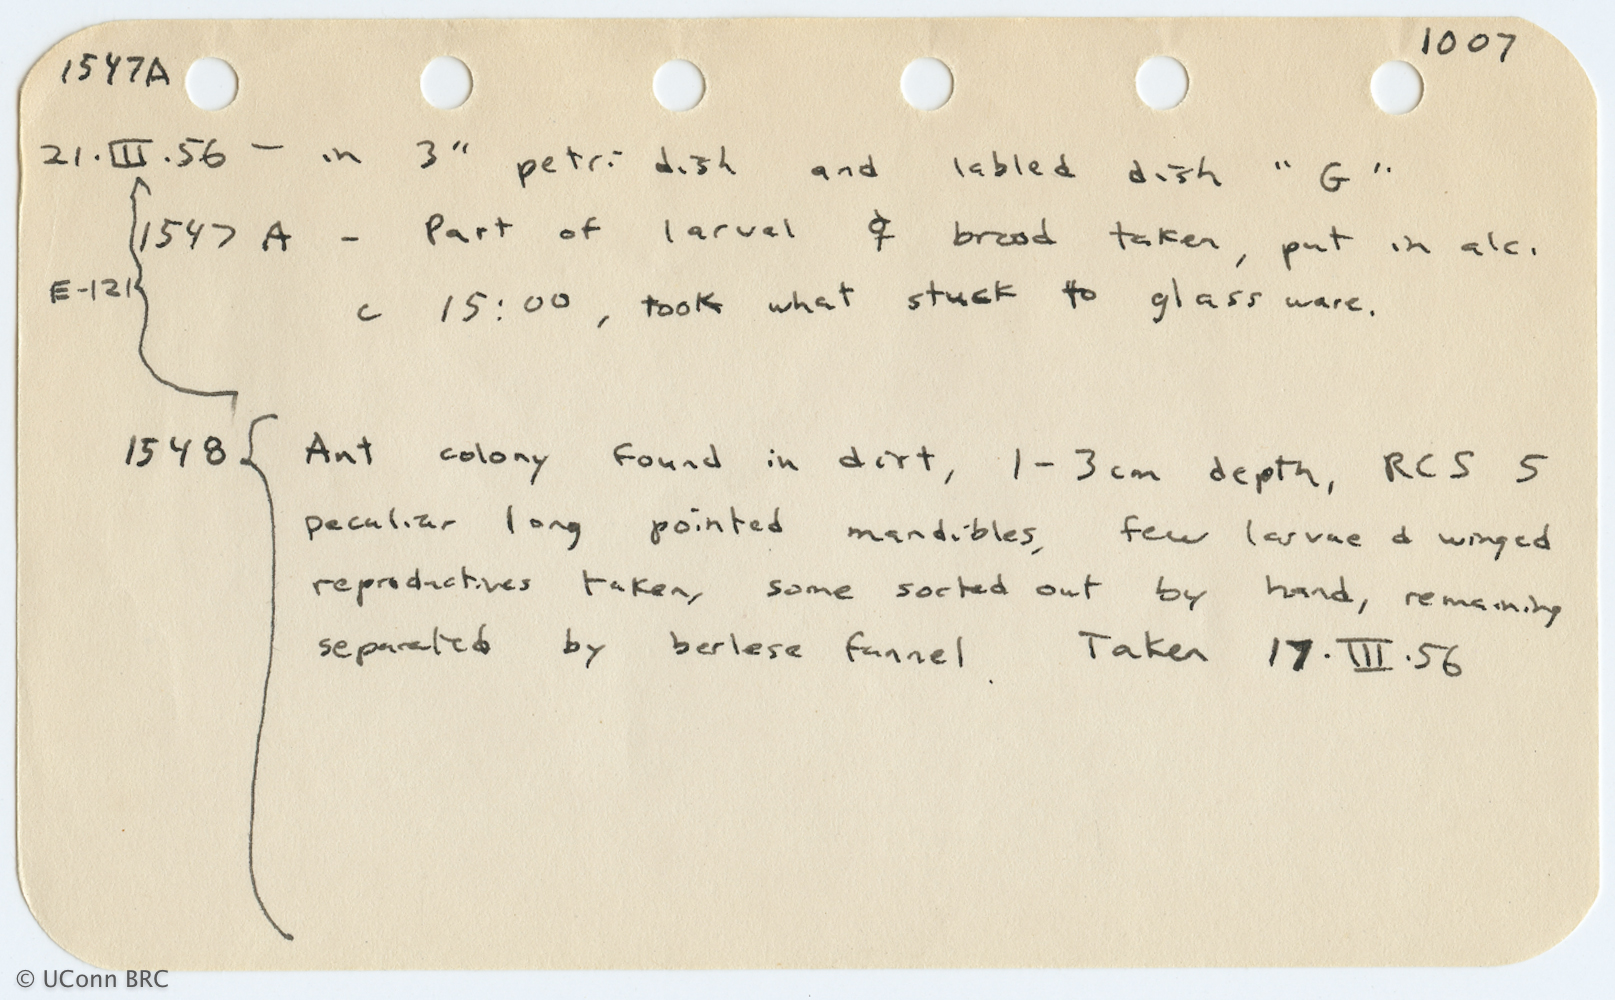 1547A 1007
21.III.56 — in 3" petri dish and labled dish "G"
1547 A - Part of larval & brood taken, put in alc.
E-121
c 15:00, took what stuck to glass ware.
1548 { Ant colony found in dirt, 1-3cm depth, RCS 5
peculiar long pointed mandibles, few larvae & winged
reproductives taken, some sorted out by hand, remaining
separated by berlese funnel. Taken 17.III.56
© UConn BRC